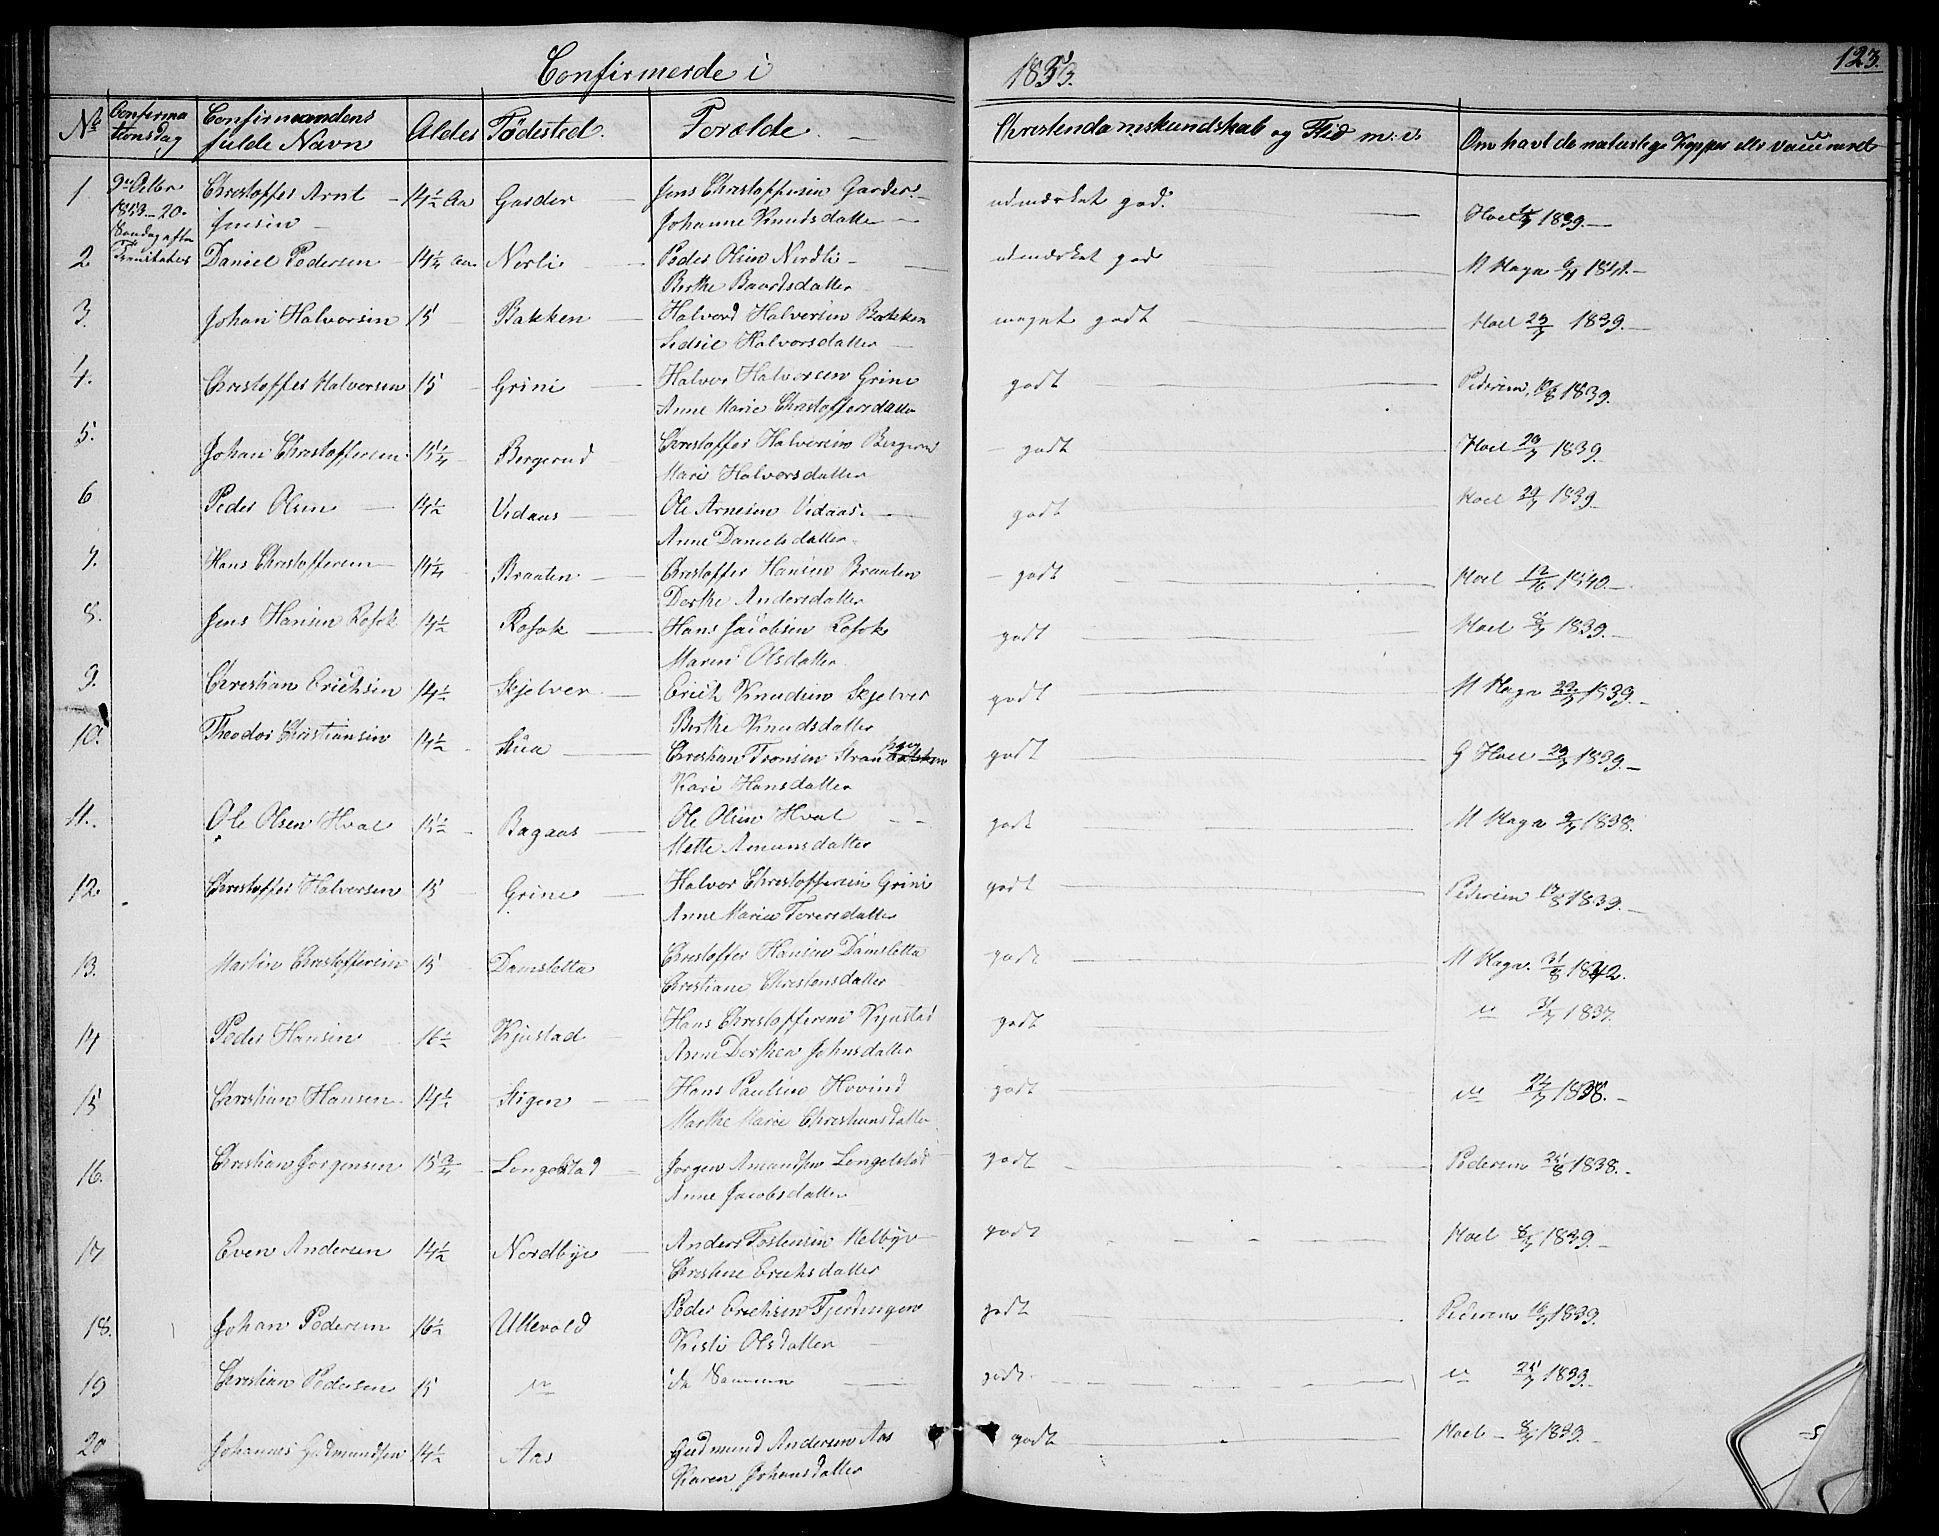 Confirmerde i 1853. 123.
No Confirmationsdag Confirmandens fulde Navn Alder Fødested. Forælde. Christendomskundskab og Flid m: v: Om havt de naturlige Kopper eller vaccineret
1 9de Octbr 1853 - 20. Søndag efter Trinitatis Christoffer Arnt Jensen 14 1/2 Aar Garder Jens Christoffersen Garder. Johanne Knudsdatter udmærket god. Hoel 1839.
2 Daniel Pedersen 14 1/4 Aar Norli Peder Olsen Nordli Berthe Baardsdatter udmærket god M Haga 1841.
3. Johan Halvorsen 15 Bakken Halvord Halvorsen Bakken Sidsil Halvorsdatter meget godt Hoel 23/7 1839.
4. Christoffer Halvorsen 15 Grini Halvor Halvorsen Grini Anne Marie Christoffersdatter godt Pedersen, 10/8 1839.
5. Johan Christoffersen 15 1/4 Bergerud Christoffer Halvorsen Bergerud Mari Halvorsdatter godt Hoel 29/7 1839.
6 Peder Olsen 14 1/2 Vidaas Ole Arnesen Vidaas. Anne Danielsdatter godt Hoel 29/7 1839.
7. Hans Christoffersen 14 1/4 Braaten Christoffer Hansen Braaten Dorthe Andersdatter godt Hoel 12/6 1840.
8. Jens Hansen Rosok 14 1/2 Rosok Hans Jacobsen Rosok Maren Olsdatter. godt Hoel 8/7 1839.
9. Christian Erichsen 14 1/2 Skjelver Erich Knudsen Skjelver Berthe Knudsdatter godt M Haga 22/7 1839.
10. Theodor Christiansen 14 1/2 Stua Christian Tronsen Kari Hansdatter godt G Hoel 29/7 1839.
11. Ole Olsen Hval 15 1/2 Bagaas Ole Olsen Hval Mette Amunsdatter godt M Haga 9/7 1838.
12. Christoffer Halvorsen 15 Grine Halvor Christoffersen Grini Anne Marie Torersdatter godt Pedersen 1839.
13. Martin Christoffersen 15 Damsletta Christoffer Hansen Damsletta Christiane Christensdatter godt M Haga. 31/8 1842.
14 Peder Hansen 16 1/2 Kjustad Hans Christoffersen Kjustad Anne Dorthea Johnsdatter godt " 3/7 1837.
15 Christian Hansen 14 1/2 Stigen Hans Paulsen Hovind Marthe Marie Christiansdatter godt " 24/7 1838.
16. Christian Jorgensen 15 3/4 Longelstad Jorgen Amundsen Longelstad Anne Jacobsdatter godt Pedersen 25/8 1838.
17 Even Andersen 14 1/2 Nordbye Anders Tostensen Melbye Christine Erichsdatter godt Hoel 8/7 1839.
18. Johan Pedersen 16 1/2 Ullevold Peder Erichsen Fjerdingen Kisti Olsdatter godt Pedersen 1839.
19 Christian Pedersen 15 " de Samme godt. " 25/7 1839.
20 Johannes Gudmundsen 14 1/2 Aas Gudmund Andersen Aas Karen Johansdatter godt Hoel 8/7 1839.